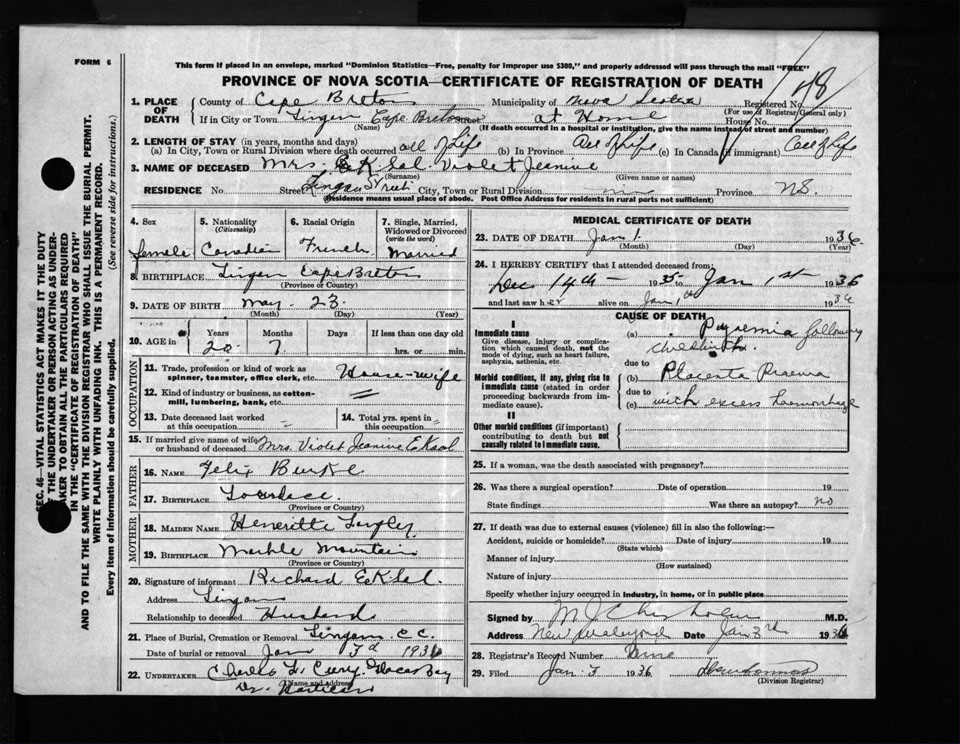 FORM 6
This form if placed in an envelope, marked "Dominion Statistics—Free, penalty for improper use $300," and properly addressed will pass through the mail "FREE"
PROVINCE OF NOVA SCOTIA—CERTIFICATE OF REGISTRATION OF DEATH
148
1. PLACE OF DEATH County of Cape Breton Municipality of Nova Scotia Registered No.
(For use of Registrar General only)
If in City or Town Lingan Cape Breton at Home House No.
(Name) (If death occurred in a hospital or institution, give the name instead of street and number)
2. LENGTH OF STAY (in years, months and days)
(a) In City, Town or Rural Division where death occurred all of Life (b) In Province All of Life (c) In Canada (if immigrant) All of Life
3. NAME OF DECEASED Mrs. Violet Jeanine
(Surname) (Given name or names)
RESIDENCE No. Street Lingan Street City, Town or Rural Division Province N.S.
(Residence means usual place of abode. Post Office Address for residents in rural parts not sufficient)
4. Sex 5. Nationality (Citizenship) 6. Racial Origin 7. Single, Married, Widowed or Divorced (write the word)
female Canadian French Married
8. BIRTHPLACE Lingan Cape Breton
(Province or County)
9. DATE OF BIRTH May 23
(Month) (Day) (Year)
10. AGE in Years Months Days If less than one day old
20 7 hrs. or min.
OCCUPATION
11. Trade, profession or kind of work as spinner, teamster, office clerk, etc. House-wife
12. Kind of industry or business, as cotton-mill, lumbering, bank, etc.
13. Date deceased last worked at this occupation
14. Total yrs. spent in this occupation
15. If married give name of wife or husband of deceased Mrs. Violet Jeanine
FATHER
16. NAME Felix Burke
17. BIRTHPLACE
(Province or County)
MOTHER
18. MAIDEN NAME Henerette
19. BIRTHPLACE Marble Mountain
(Province or County)
20. Signature of informant Richard
Address Lingan
Relationship to deceased Husband
21. Place of Burial, Cremation or Removal Lingan C.C.
Date of burial or removal Jan 3d 1936
22. UNDERTAKER Curry Glace Bay
(Name and address)
MEDICAL CERTIFICATE OF DEATH
23. DATE OF DEATH Jan 1. 1936
(Month) (Day) (Year)
24. I HEREBY CERTIFY that I attended deceased from:
Dec 14th 1935 to Jan 1st 1936
and last saw her alive on Jan 1th 1936
CAUSE OF DEATH
I
Immediate cause
Give disease, injury or complication which caused death, not the mode of dying, such as heart failure, asphyxia, asthenia, etc.
(a) Pyaemia following childbirth.
due to
Morbid conditions, if any, giving rise to immediate cause (stated in order proceeding backwards from immediate cause).
(b) Placenta Praevia
due to
(c) with excess haemorrhage
II
Other morbid conditions (if important) contributing to death but not causally related to immediate cause.
25. If a woman, was the death associated with pregnancy?
26. Was there a surgical operation? Date of operation 19
State findings Was there an autopsy? no
27. If death was due to external causes (violence) fill in also the following:—
Accident, suicide or homicide? Date of injury 19
(State which)
Manner of injury
(How sustained)
Nature of injury
Specify whether injury occurred in industry, in home, or in public place
Signed by M.D.
Address New Waterford Date Jan 3rd 1936
28. Registrar's Record Number
29. Filed Jan 3 1936
(Division Registrar)
SEC. 46—VITAL STATISTICS ACT MAKES IT THE DUTY
OF THE UNDERTAKER OR PERSON ACTING AS UNDER-
TAKER TO OBTAIN ALL THE PARTICULARS REQUIRED
IN THE "CERTIFICATE OF REGISTRATION OF DEATH"
AND TO FILE THE SAME WITH THE DIVISION REGISTRAR WHO SHALL ISSUE THE BURIAL PERMIT.
WRITE PLAINLY WITH UNFADING INK. THIS IS A PERMANENT RECORD.
Every item of information should be carefully supplied. (See reverse side for instructions.)